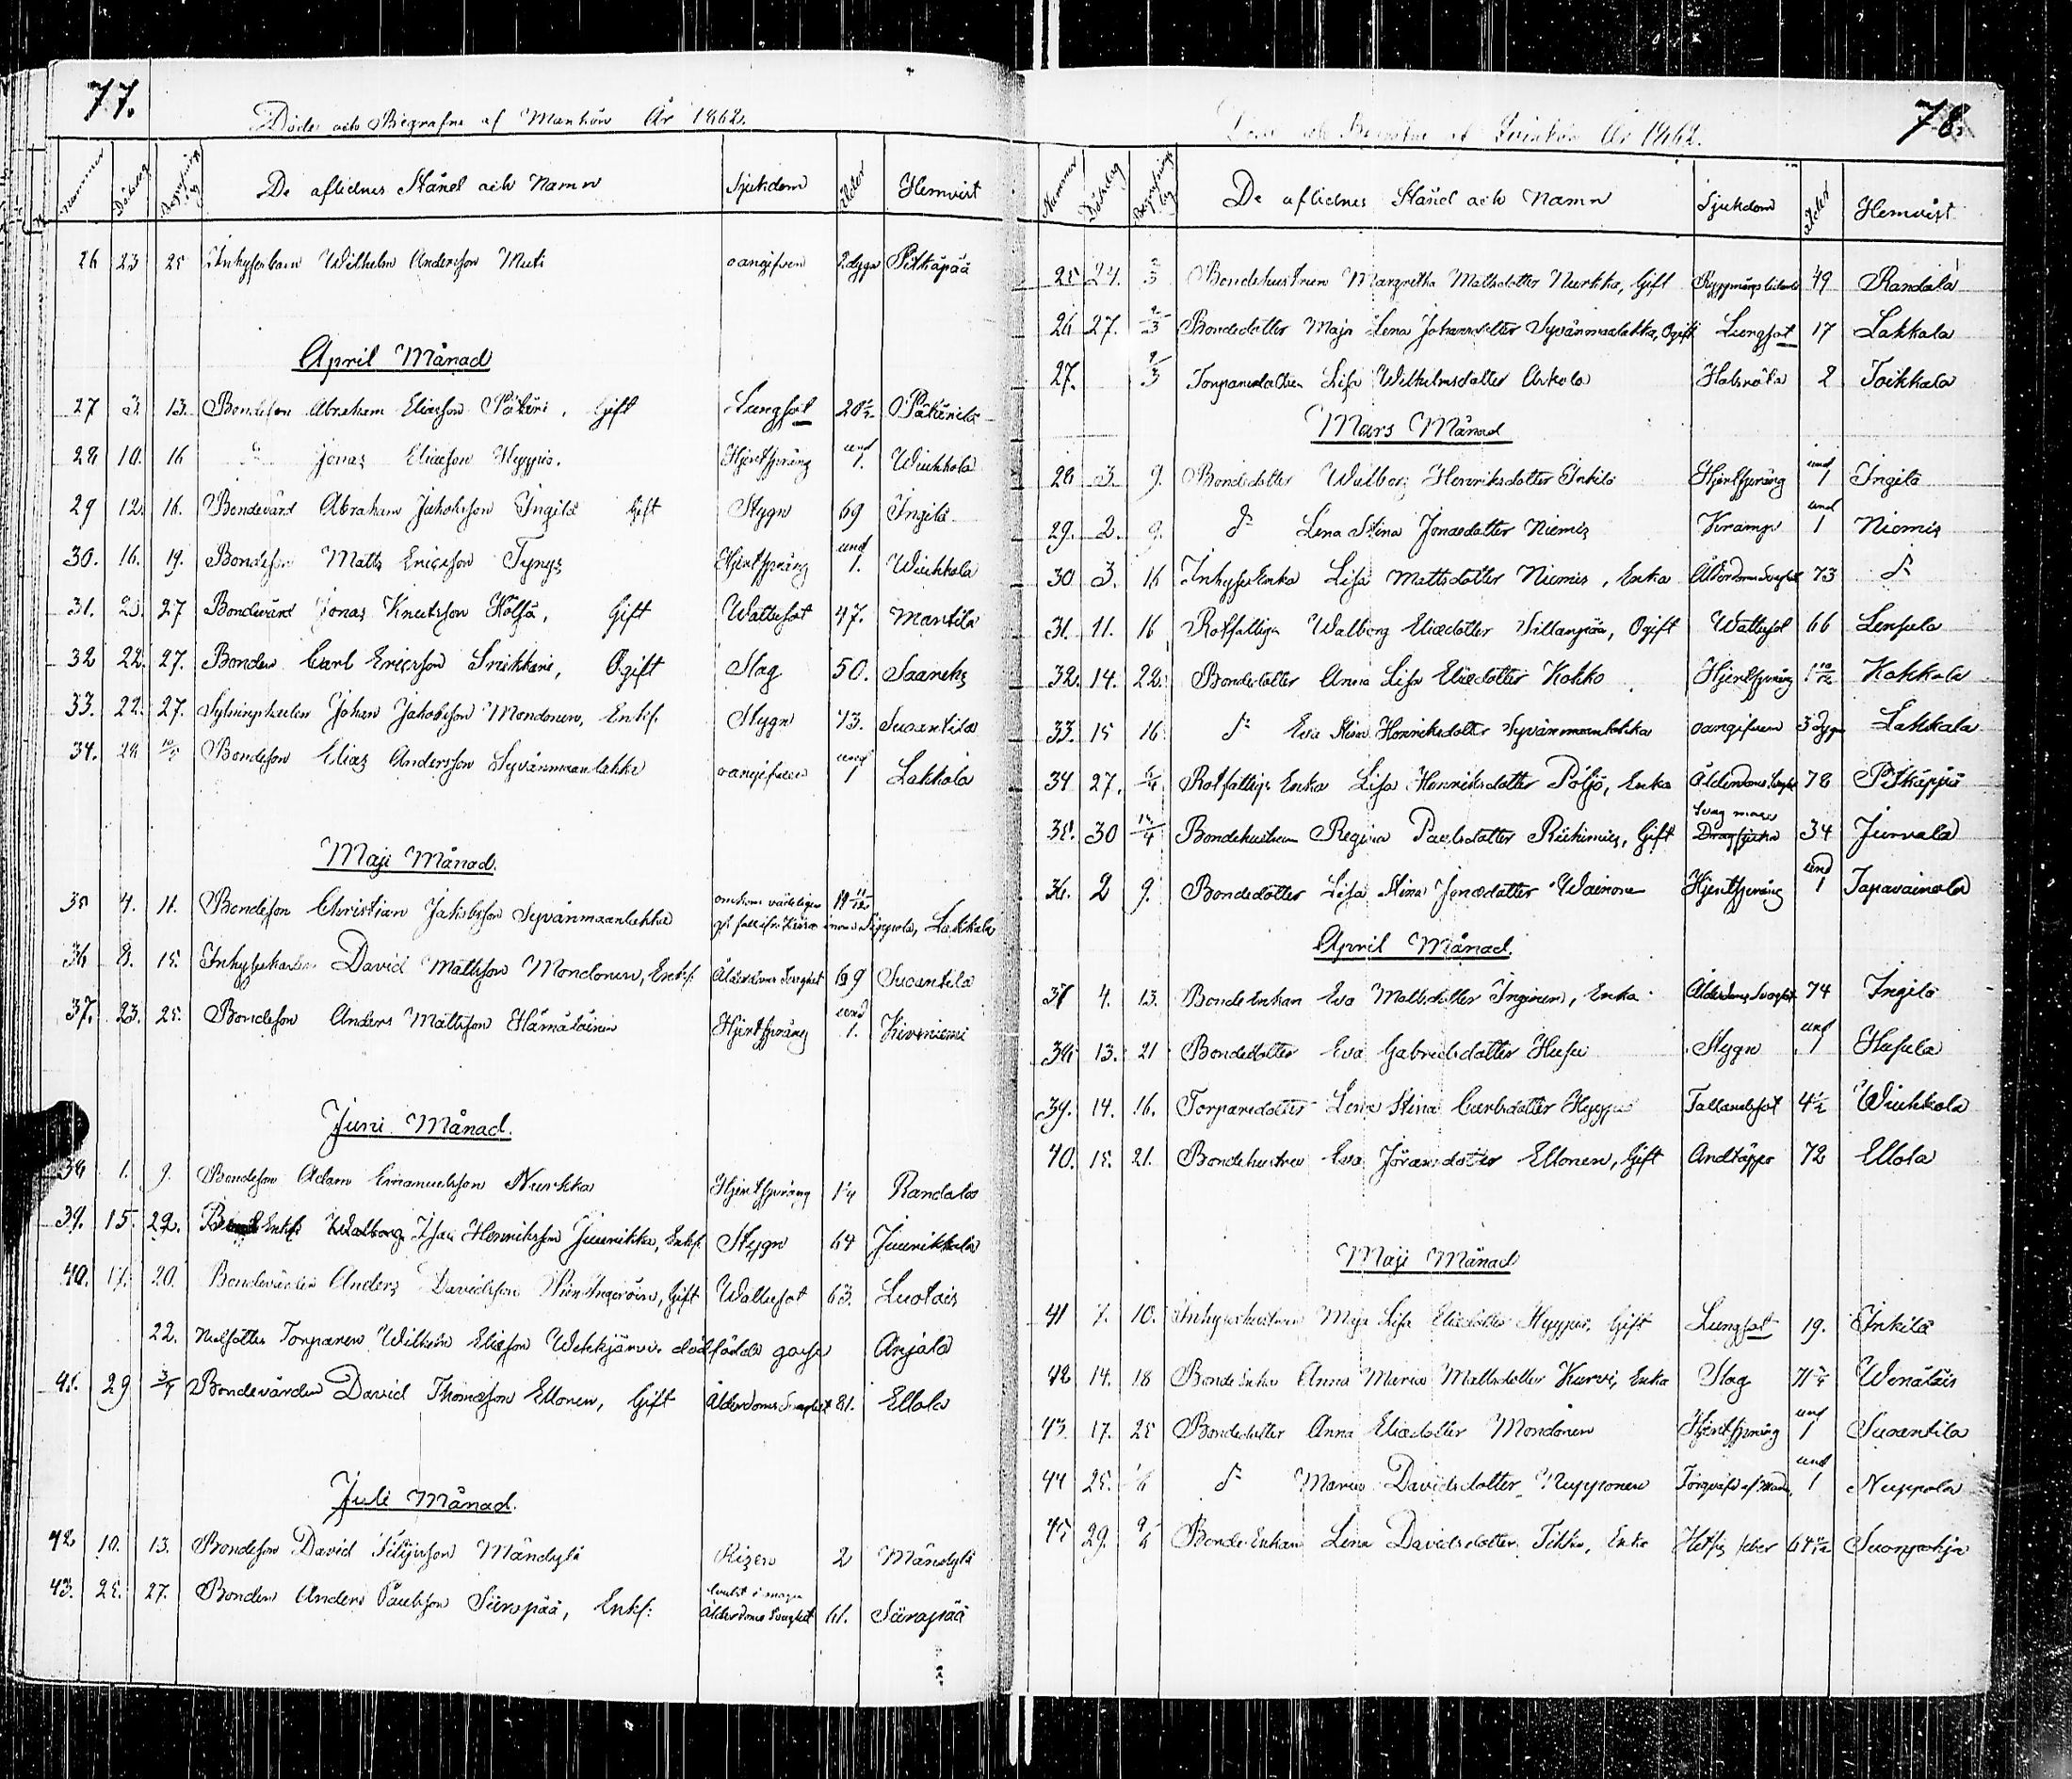 77.
Döde och Begrafne af Mankön År 1862.
Nummer Dödsdag Begrafningsdag De aflidnes Stånd och Namn Sjukdom Ålder Hemvist
26 23 25 Inhyses barn Wilhelm Andersson Muti oangifven 2 dygn Pitkäpää
April Månad
27 3. 13. Bondeson Abraham Eliasson Päkäri, Gift Lungsot Päkärilä
28 10. 16 " Jonas Eliasson Hyypiö. Hjertsprång und 1. Wiuhkola
29 12. 16. Bondevärd Abraham Jakobsson Ingilä Gift Stygn 69 Ingilä
30. 16. 19. Bondeson Matts Ericsson Tynys Hjertsprång und 1. Wiuhkola
31. 23. 27 Bondevärd Jonas Knutsson Hölsä, Gift Wattusot 47. Mantila
32 22. 27. Bonden Carl Ericsson Snikkari, Ogift Slag 50. Saareks
33. 22. 27. Johan Jakobsson Mondonen, Enkl. Stygn 73. Suoantila
34. 28 Bondeson Elias Andersson Syvänmaanlakka oangifven und 1 Lakkala
Maji Månad.
35 4. 11. Bondeson Christian Jakobsson Syvänmaanlakka omkom 19 11/12 Sippola, Lakkala
36 8. 15. Inhyseskarlen David Mattsson Mondonen, Enkl. Ålderdoms Svaghet 69 Suoantila
37. 23. 25. Bondeson Anders Mattsson Hämäläinen Hjertsprång und 1. Kivuniemi
Juni Månad.
38 1. 9. Bondeson Adam Emanuelsson Nurkka Hjertsprång 1 1/4 Randala
39. 15. 22. Enkl. Henriksson Juurikka, Enkl. Stygn 64 Juurikkala
40. 17. 20. Bondevärden Anders Davidsson Gift Wattusot 63. Luotois
22. Torparen Wilhelm Eliasson dödfödda gosse Anjala
41. 29 3/7 Bondevärden David Thomasson Ellonen, Gift Ålderdoms Svaghet 81. Ellola
Juli Månad.
42 10. 13. Bondeson David Mändylä Risen 2 Mändylä
43. 25. 27. Bonden Anders Paulsson Siirapää, Enkl: Ålderdoms Svaghet 61. Siirapää
78.
Döde och Begrafne af Qvinkön År 1862.
Nummer Dödsdag Begrafningsdag De aflidnes Stånd och Namn Sjukdom Ålder Hemvist
25 24. 2/3 Bondehustrun Margretha Mattsdotter Nurkka, Gift 49 Randala
26 27. Bondedotter Maja Lena Johansdotter Syvänmaalakka, Ogift Lungsot 17 Lakkala
27. 9/3 Torparedottren Lisa Wilhelmsdotter Askola Halsröta 2 Toikkala
Mars Månad
28 3. 9. Bondedotter Walborg Henriksdotter Inkilä Hjertsprång und 1 Ingilä
29. 2. 9. d:o Lena Stina Jonasdotter Niemis Kramp und 1 Niemis
30 3. 16 Inhyses Enka Lisa Mattsdotter Niemis, Enka Ålderdoms Svaghet 73 d:o
31. 11. 16 Rotfattiga Walborg Eliedotter Villanpää, Ogift Wattusot 66 Lensula
32. 14. 22. Bondedotter Anna Lisa Eliedotter Kokko Hjertsprång 1 10/12 Kokkola
33. 15 16. d:o Eva Stina Henriksdotter Syvänmaanlakka oangifven 3 dygn Lakkala
34 27. 6/4 Rotfattige Enka Lisa Henriksdotter Pöljö, Enka Ålderdoms Svaghet 78 Pitkäpää
35. 30 Bondehustrun Regina Paulsdotter Riihimies, Gift Svag mage 34 Jurvala
36. 2 9. Bondedotter Lisa Stina Jonasdotter Wainonen Hjertsprång und 1 Tapavainola
April Månad.
37 4. 13. Bonde Enkan Eva Mattsdotter Inginen, Enka Ålderdoms Svaghet 74 Ingilä
38. 13. 21 Bondedotter Eva Gabrielsdotter Husu Stygn und 1 Husula
39. 14. 16. Torparedotter Lena Stina Carlsdotter Hyypiö Fallandesot 4 1/2 Wiuhkola
40. 15. 21. Bondehustru Eva Jöransdotter Ellonen, Gift Andtäppa 72 Ellola
Maji Månad
41 7. 10. Inhyseshustrun Maja Lisa Eliedotter Hyypiö, Gift Lungsot 19. Inkilä
42 14. 18 Bonde Enka Anna Maria Mattsdotter Kurvi, Enka Slag 71 3/4 Wenäläis
43. 17. 25 Bondedotter Anna Eliedotter Mondonen Hjertsprång und 1 Suoantila
44 25. 1/6 d:o Maria Davidsdotter Nupponen Förqväfd af Modren und 1 Nuppola
45 29. 9/6 Bonde Enkan Lena Davidsdotter Tikka, Enka Hetsig feber Suonpohja